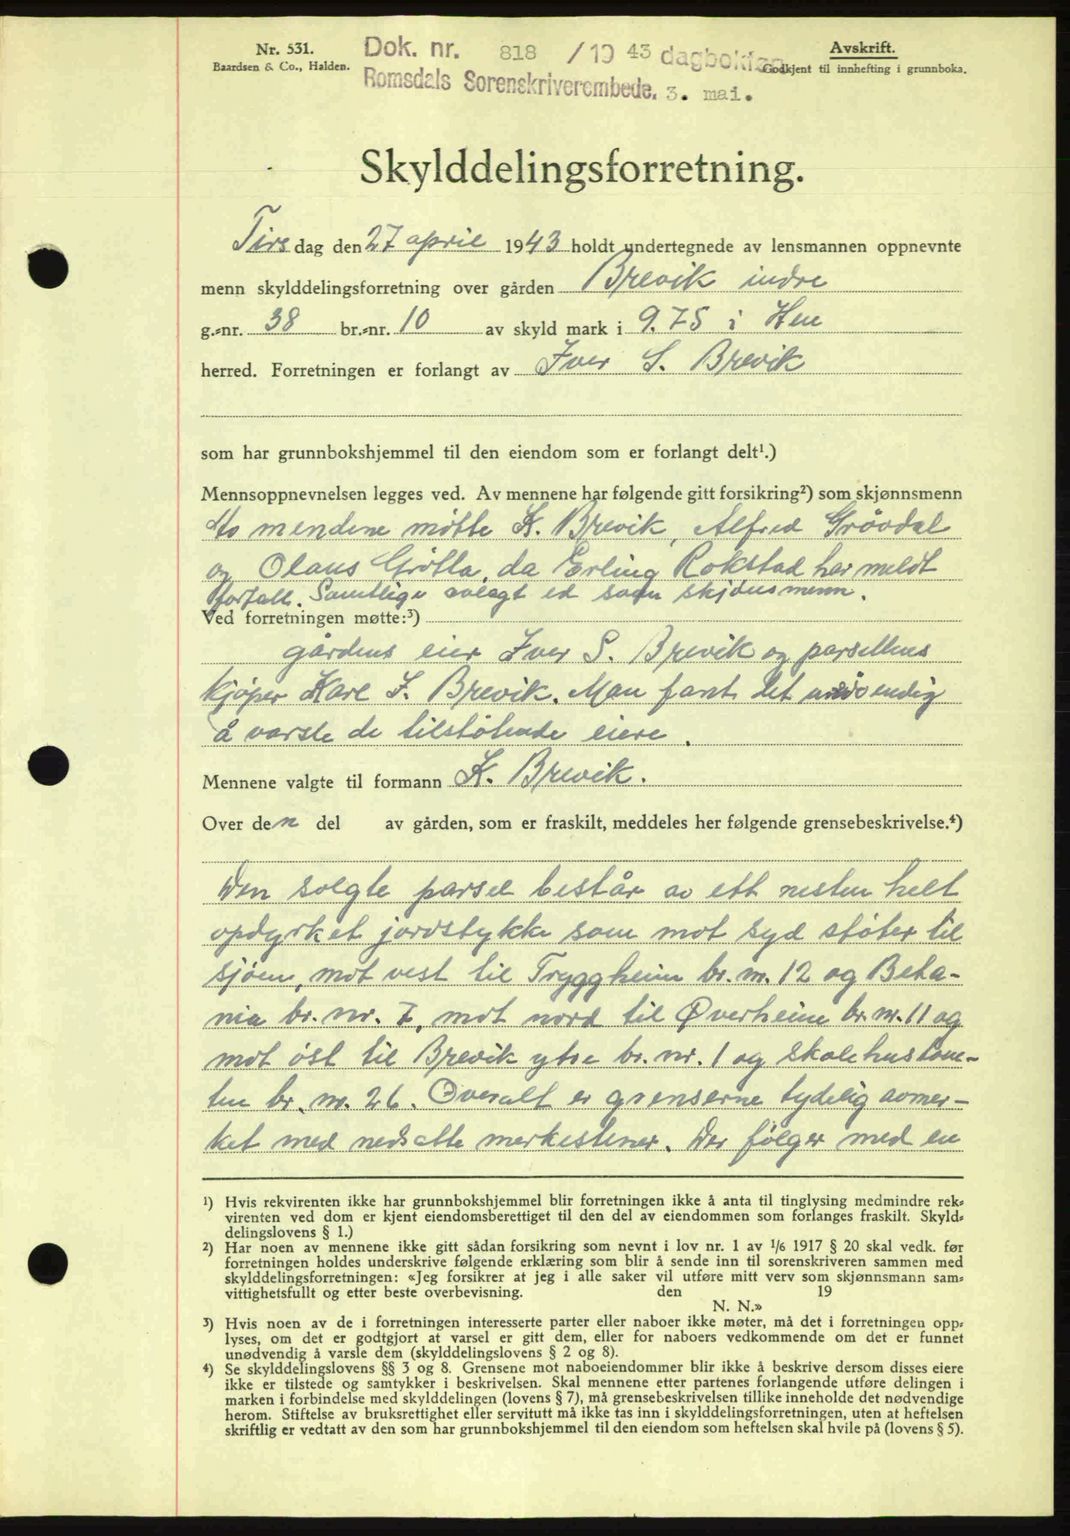 Nr. 531.
Baardsen & Co., Halden.
Dok. nr. 818 /1943 dagboken
Romsdals Sorenskriverembede, 3. mai.
Avskrift.
Godkjent til innhefting i grunnboka.
Skylddelingsforretning.
Tirsdag den 27 april 1943 holdt undertegnede av lensmannen oppnevnte
menn skylddelingsforretning over gården Brevik indre
g.-nr. 38 br.-nr. 10 av skyld mark i 9.75 i Hen
herred. Forretningen er forlangt av Iver S. Brevik
som har grunnbokshjemmel til den eiendom som er forlangt delt¹.)
Mennsoppnevnelsen legges ved. Av mennene har følgende gitt forsikring²) som skjønnsmenn
mendene møtte K. Brevik, Alfred Grövdal
og Olaus Grötta, da Erling Rokstad har meldt
forfall. Samtlige avlagt ed som skjönsmenn.
Ved forretningen møtte:³)
gårdens eier Iver S. Brevik og parsellens
kjöper Karl I. Brevik. Man fant det unödvendig
å varsle de tilstötende eiere.
Mennene valgte til formann K. Brevik.
Over den del av gården, som er fraskilt, meddeles her følgende grensebeskrivelse.⁴)
Den solgte parsel består av ett nesten helt
opdyrket jordstykke som mot syd stöter til
sjöen, mot vest til Tryggheim br. nr. 12 og Beta-
nia br. nr. 7, mot nord til Øverheim br. nr. 11 og
mot öst til Brevik ytre br. nr. 1 og skolehustom-
ten br. nr. 26. Overalt er grenserne tydelig avmer-
ket med nedsatte merkestener. Der fölger med en
¹) Hvis rekvirenten ikke har grunnbokshjemmel blir forretningen ikke å anta til tinglysing medmindre rek-
virenten ved dom er kjent eiendomsberettiget til den del av eiendommen som forlanges fraskilt. Skyld-
delingslovens § 1.)
²) Har noen av mennene ikke gitt sådan forsikring som nevnt i lov nr. 1 av 1/6 1917 § 20 skal vedk. før
forretningen holdes underskrive følgende erklæring som blir å sende inn til sorenskriveren sammen med
skylddelingsforretningen: «Jeg forsikrer at jeg i alle saker vil utføre mitt verv som skjønnsmann sam-
vittighetsfullt og etter beste overbevisning. den 19
N. N.»
³) Hvis noen av de i forretningen interesserte parter eller naboer ikke møter, må det i forretningen opp-
lyses, om det er godtgjort at varsel er gitt dem, eller for naboers vedkommende om det er funnet
unødvendig å varsle dem (skylddelingslovens § 2 og 8).
⁴) Se skylddelingslovens §§ 3 og 8. Grensene mot naboeiendommer blir ikke å beskrive dersom disses eiere
ikke er tilstede og samtykker i beskrivelsen. Skal mennene etter partenes forlangende utføre delingen i
marken i forbindelse med skylddelingen (lovens § 7), må grensebeskrivelsen tillike inneholde det nødvendige
herom. Stiftelse av bruksrettighet eller servitutt må ikke tas inn i skylddelingsforretningen, uten at heftelsen
skriftlig er vedtatt av den som har grunnbokshjemmel til den eiendom som heftelsen skal hvile på (lovens § 5).